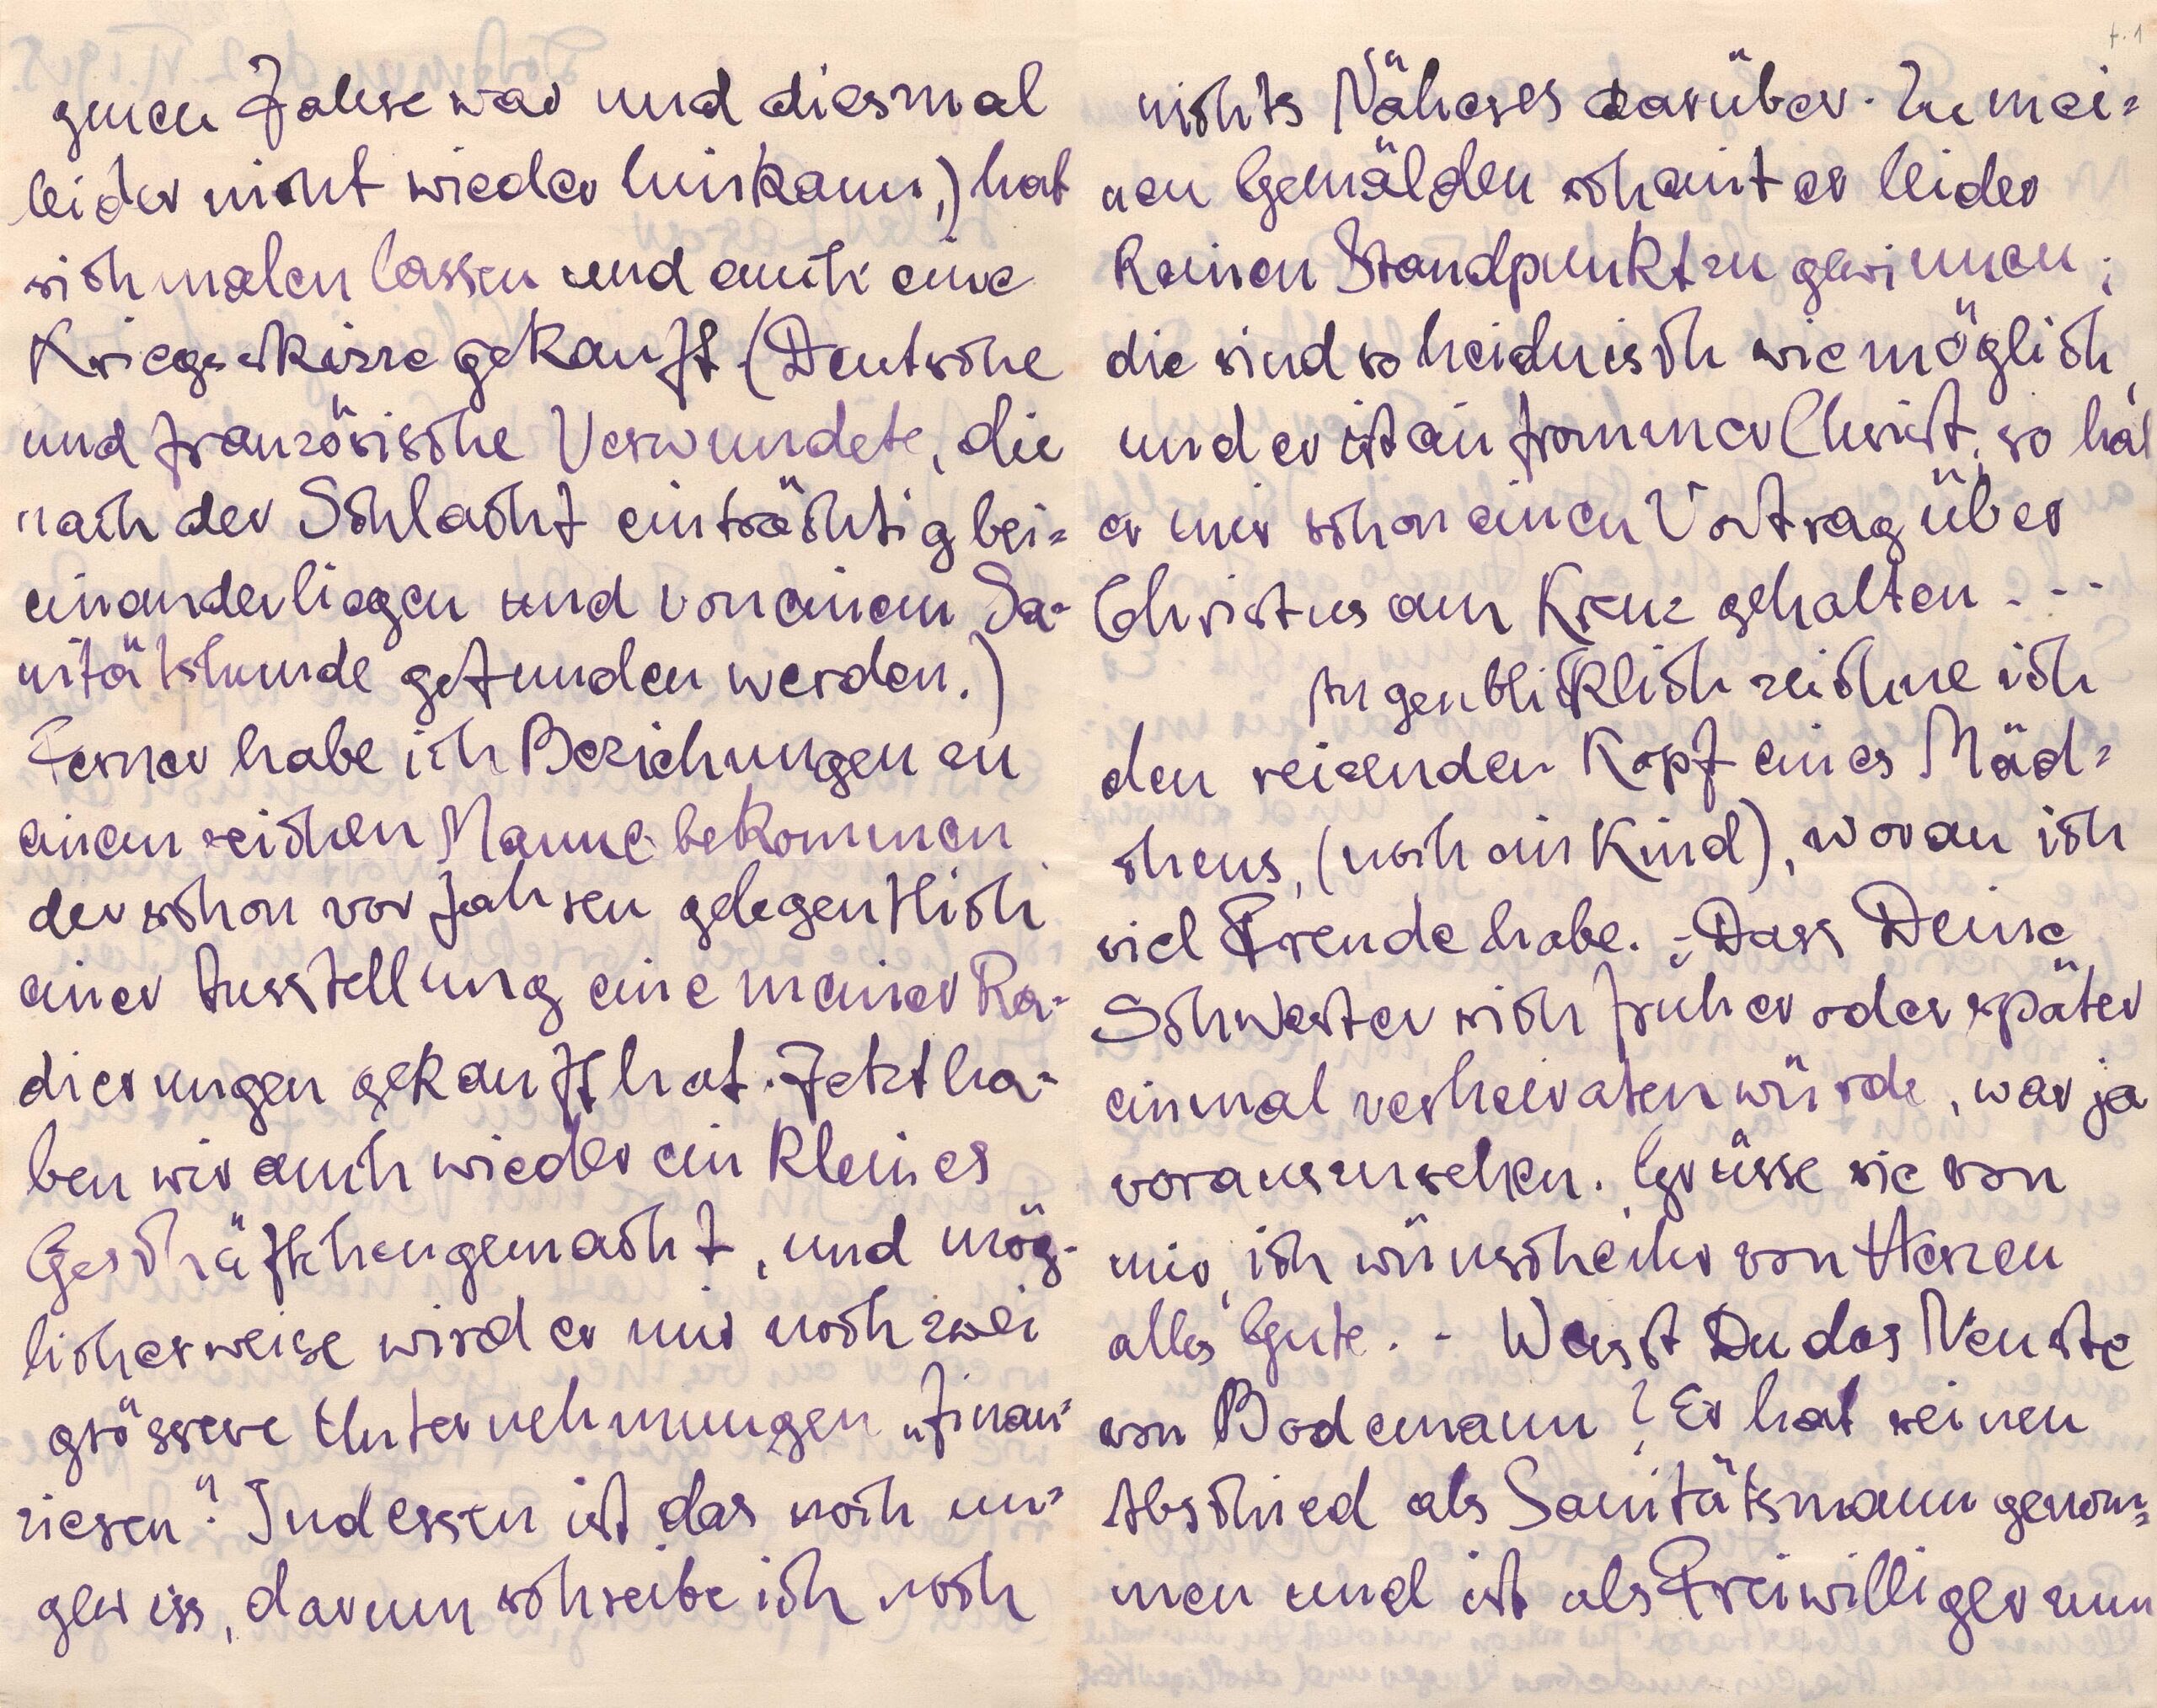 genen Jahre war und diesmal
leider nicht wieder hinkam,) hat
sich malen lassen und auch eine
Kriegsskizze gekauft (Deutsche
und französische Verwundete, die
nach der Schlacht einträchtig bei-
einanderliegen und von einem Sa-
nitätshunde gefunden werden.)
Ferner habe ich Beziehungen zu
einem reichen Manne bekommen,
der schon vor Jahren gelegentlich
einer Ausstellung eine meiner Ra-
dierungen gekauft hat. Jetzt ha-
ben wir auch wieder ein kleines
Geschäftchen gemacht, und mög-
licherweise wird er mir noch zwei
grössere Unternehmungen „finan-
zieren". Indessen ist das noch un-
gewiss, darum schreibe ich noch
nichts Näheres darüber. Zu mei-
nen Gemälden scheint er leider
keinen Standpunkt zu gewinnen;
die sind so heidnisch wie möglich,
und er ist ein frommer Christ, so hat
er mir schon einen Vortrag über
Christus am Kreuz gehalten - - -
Augenblicklich zeichne ich
den reizenden Kopf eines Mäd-
chens, (noch ein Kind), woran ich
viel Freude habe. - Dass Deine
Schwester sich früher oder später
einmal verheiraten würde, war ja
vorauszusehen. Grüsse sie von
mir, ich wünsche ihr von Herzen
alles Gute. - Weisst Du das Neuste
von Bodemann? Er hat seinen
Abschied als Sanitätsmann genom-
men und ist als Freiwilliger zum